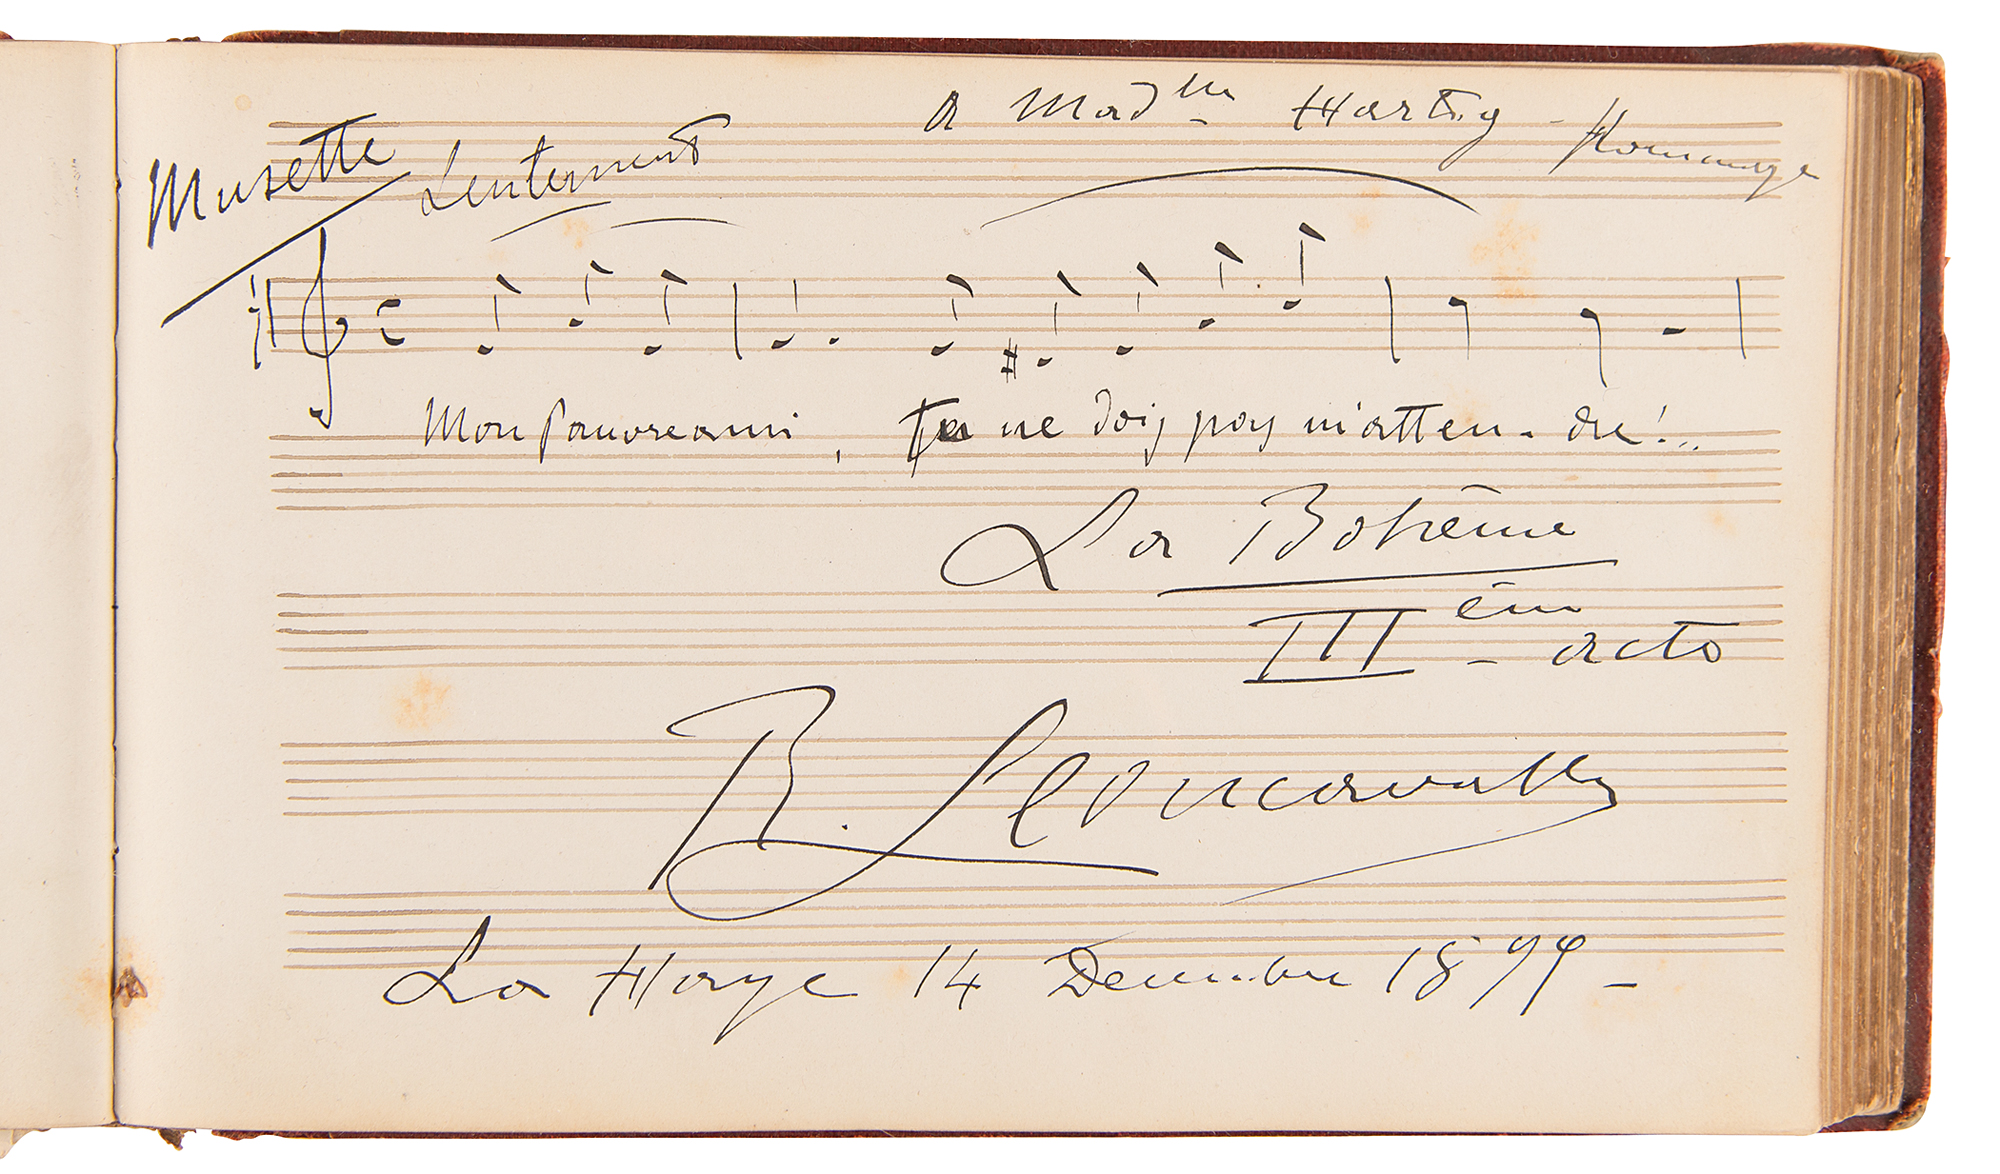 a Mad^lle Hartog - Hommage
Musette Lentement
Mon pauvre ami, tu ne dois pas m'atten - dre!...
La Bohême
III^ème acte
R. Leoncavallo
La Haye 14 Decembre 1899 -